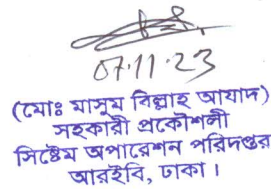 07.11.23
(মোঃ মাসুম বিল্লাহ আযাদ)
সহকারী প্রকৌশলী
সিষ্টেম অপারেশন পরিদপ্তর
আরইবি, ঢাকা।